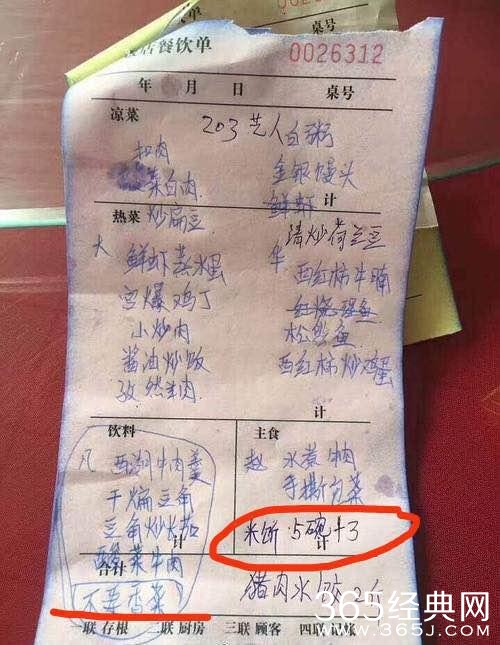 0026312
店餐饮单
0026312
年 月 日 桌号
凉菜
203艺人白粥
扣肉
金银馒头
菜白肉
鲜虾
计
热菜 炒扁豆
清炒荷兰豆
大 鲜虾蒸水蛋
华 西红柿牛腩
宫爆鸡丁
红烧鲤鱼
小炒肉
松鼠鱼
酱油炒饭
西红柿炒鸡蛋
孜然羊肉
计
饮料
主食
凡 西湖牛肉羹
赵 水煮牛肉
干煸豆角
手撕包菜
豆角炒火茄
计
米饼·5碗+3
计
酸菜牛肉
合计
猪肉水饺
不弄香菜
一联 存根 二联 厨房 三联 顾客 四联 记帐
365经典网
www.365j.com